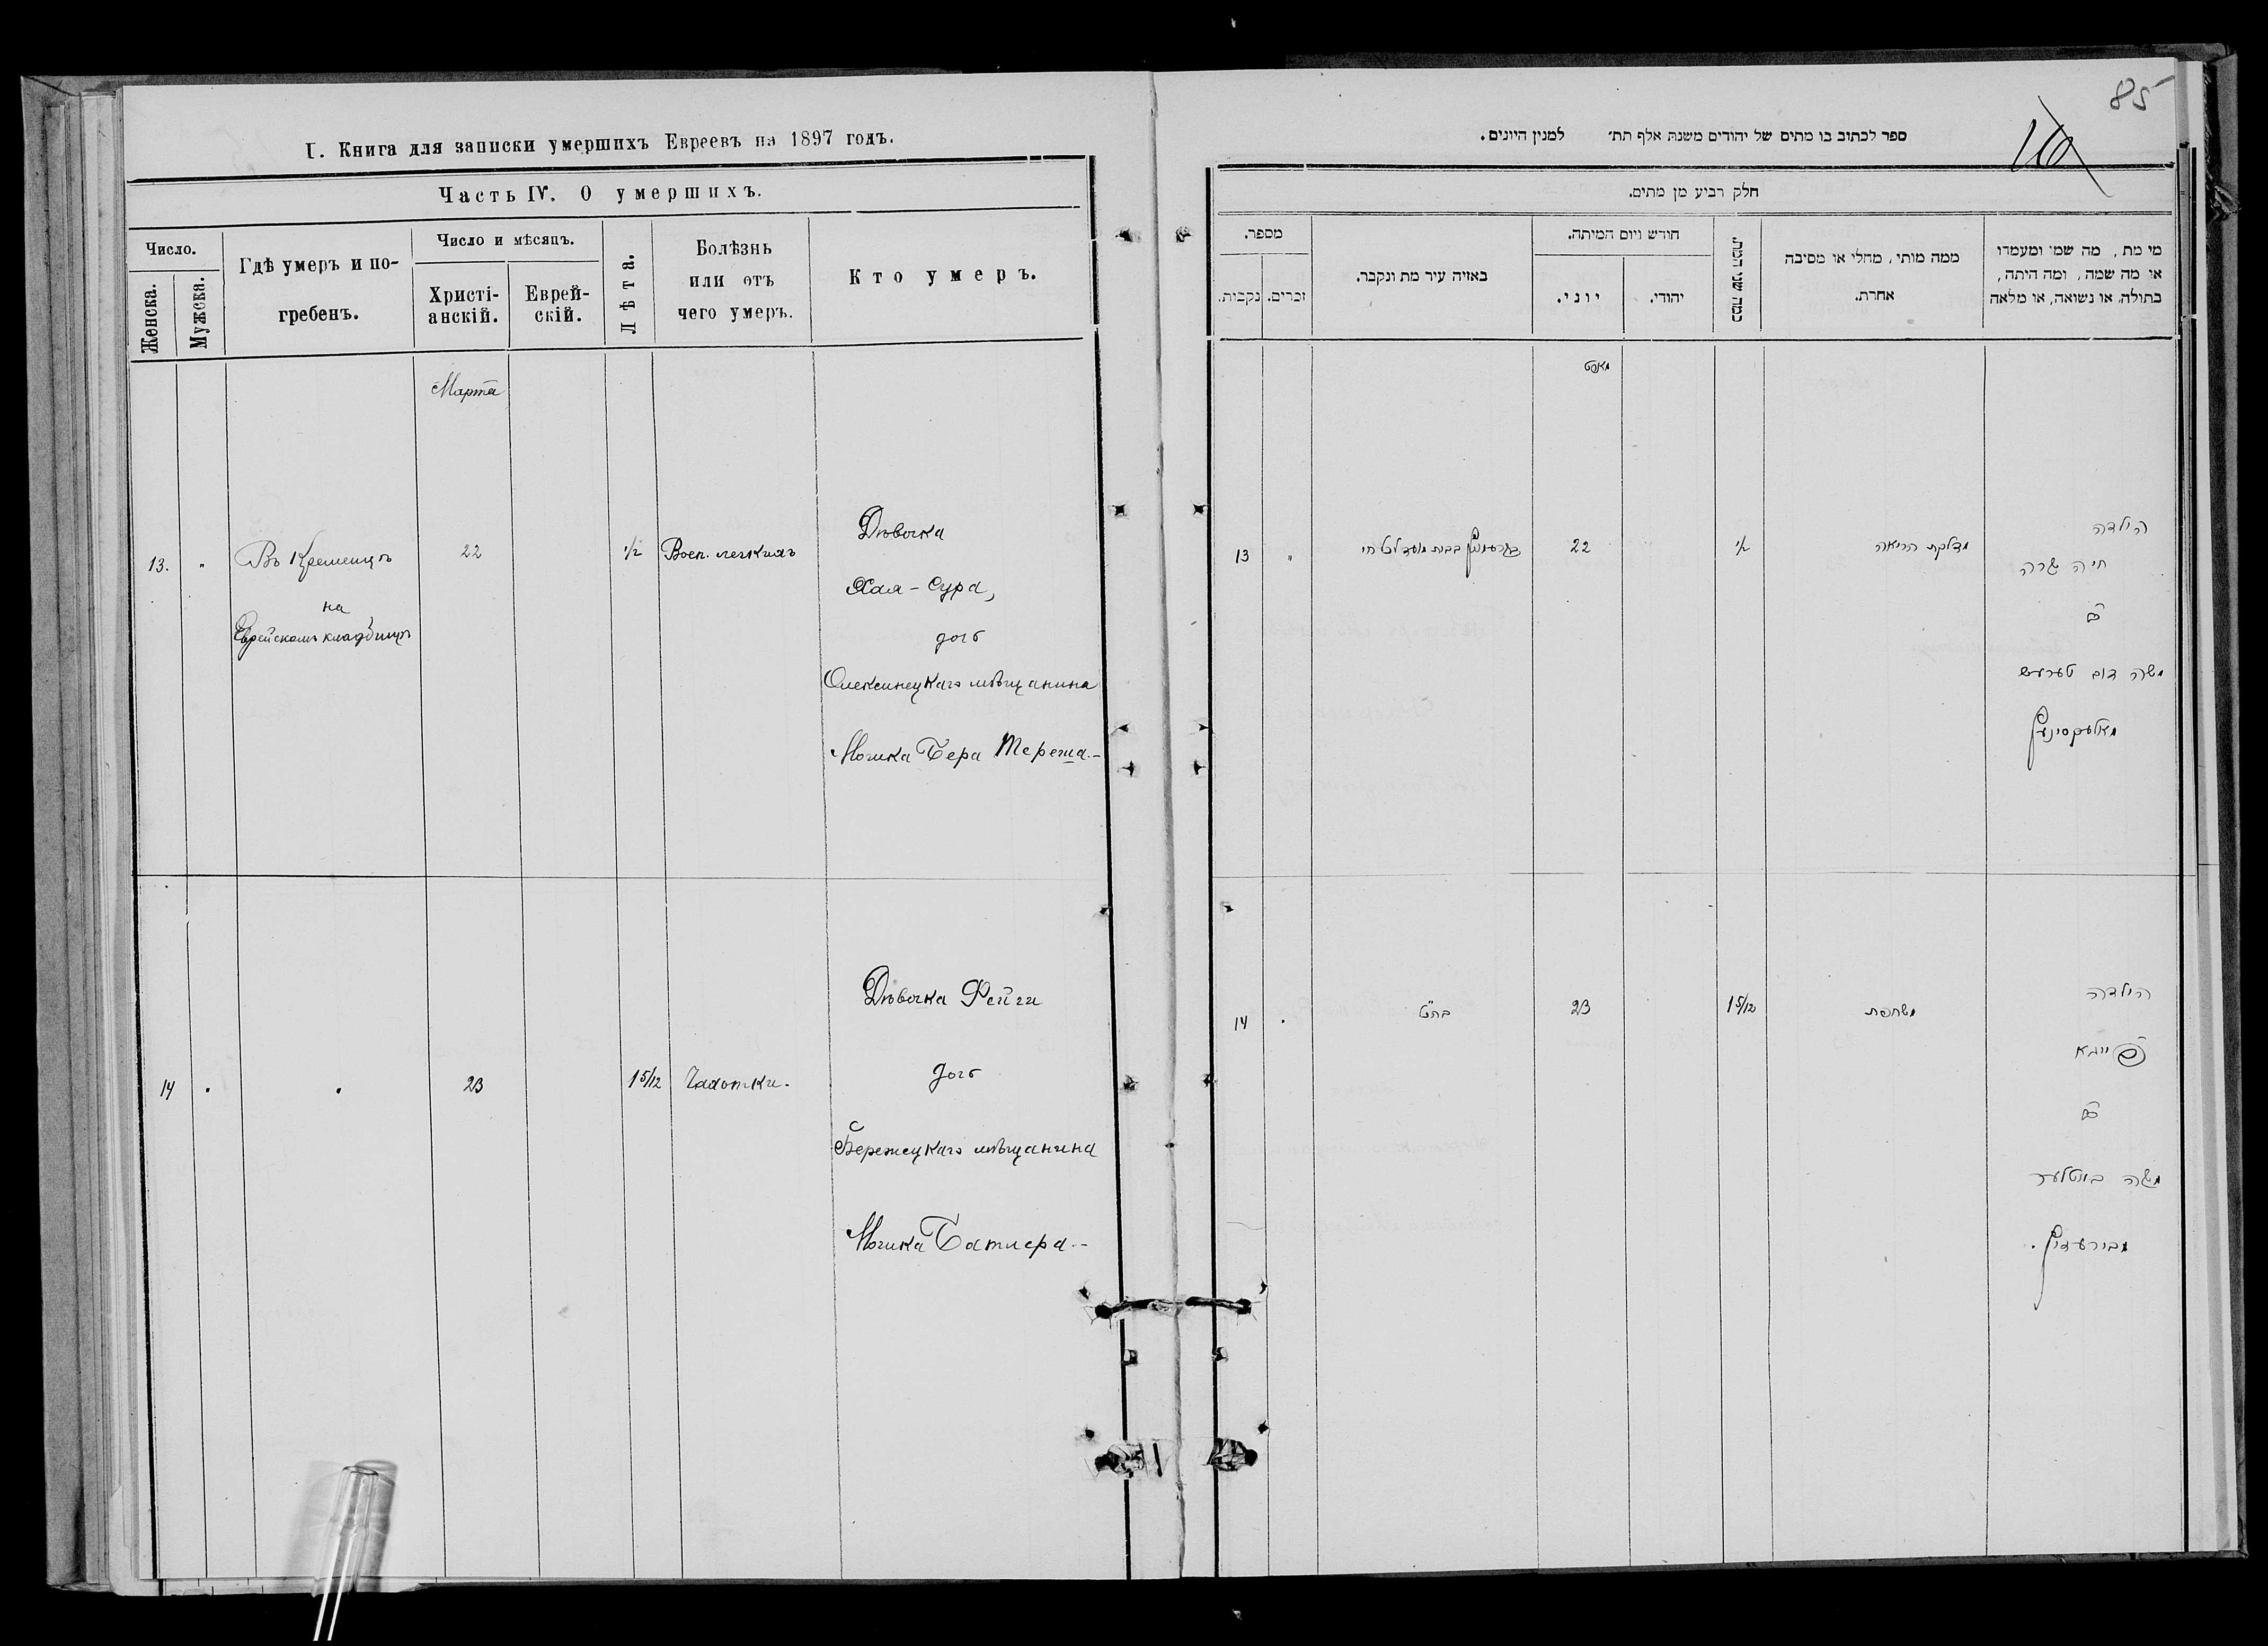 I. Книга для записки умершихъ Евреевъ на 1897 годъ.
Часть IV. О умершихъ.
Число.
Женска.
Мужска.
Гдѣ умеръ и по-
гребенъ.
Число и мѣсяцъ.
Христі-
анскій.
Еврей-
скій.
Лѣта.
Болѣзнь
или отъ
чего умеръ.
Кто умеръ.
Марта
13. " Въ Кременцѣ
на
Еврейскомъ кладбищѣ
22
1/2
Восп. легкихъ
Дѣвочка
Хая-Сура,
дочь
Олексинецкаго мѣщанина
Мошка Бера Тереша.-
14 " " 23 1 5/12 Чахотки.
Дѣвочка Фейги
дочь
Бережецкаго мѣщанина
Мошка Батлера.-
85
ספר לכתוב בו מתים של יהודים משנת אלף תת׳ למנין היונים.
חלק רביע מן מתים.
מספר.
נקבות.
זכרים.
באיזה עיר מת ונקבר.
חודש ויום המיתה.
יוני.
יהודי.
כמה שני המת.
ממה מותי, מחלי או מסיבה
אחרת.
מי מת, מה שמו ומעמדו
או מה שמה, ומה היתה,
בתולה או נשואה, או מלאה
מארט
13 " בבית מועד לכל חי
22
1/2
מדלקת הריאה
הילדה
חיה שרה
בת
משה דוב טערעש
מאלעקסיניץ
14 " בהנ״ל
23
1 5/12
משחפת
הילדה
פייגא
בת
משה באטלער